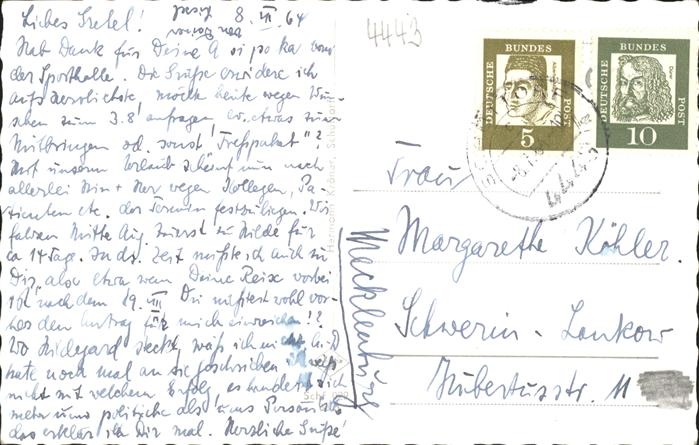 Liebes Gretel! 8. VII. 64
Hab Dank für Deine Ansipoka von
der Sporthalle. Die Grüße erwidere ich
aufs herzlichste, möchte heute wegen Wün-
schen zum 3.8. anfragen, ob etwas zum
Mitbringen od. sonst "Freßpaket"?
Mit unserem Urlaub scheint nun nach
allerlei Hin + Her wegen Kollegen, Pa-
tienten etc. der Termin festzuliegen. Wir
fahren Mitte Aug. zuerst zu Hilde für
ca 14 Tage. In ds. Zeit müßte ich auch zu
Dir, also etwa wenn Deine Reise vorbei
ist, nach dem 19. VIII. Du müßtest wohl vor-
her den Antrag für mich einreichen!!
Wo Hildegard steckt, weiß ich nicht.
hate noch mal an sie geschrieben, weiß
nicht mit welchem Erfolg, es handelt sich
mehr ums politische als ums Persönliche,
das erklär ich Dir mal. Herzliche Grüße!
4443
DEUTSCHE BUNDESPOST
5
DEUTSCHE BUNDESPOST
10
Frau
Margarethe Köhler.
Schwerin - Lankow
Hubertusstr. 11
Mecklenburg